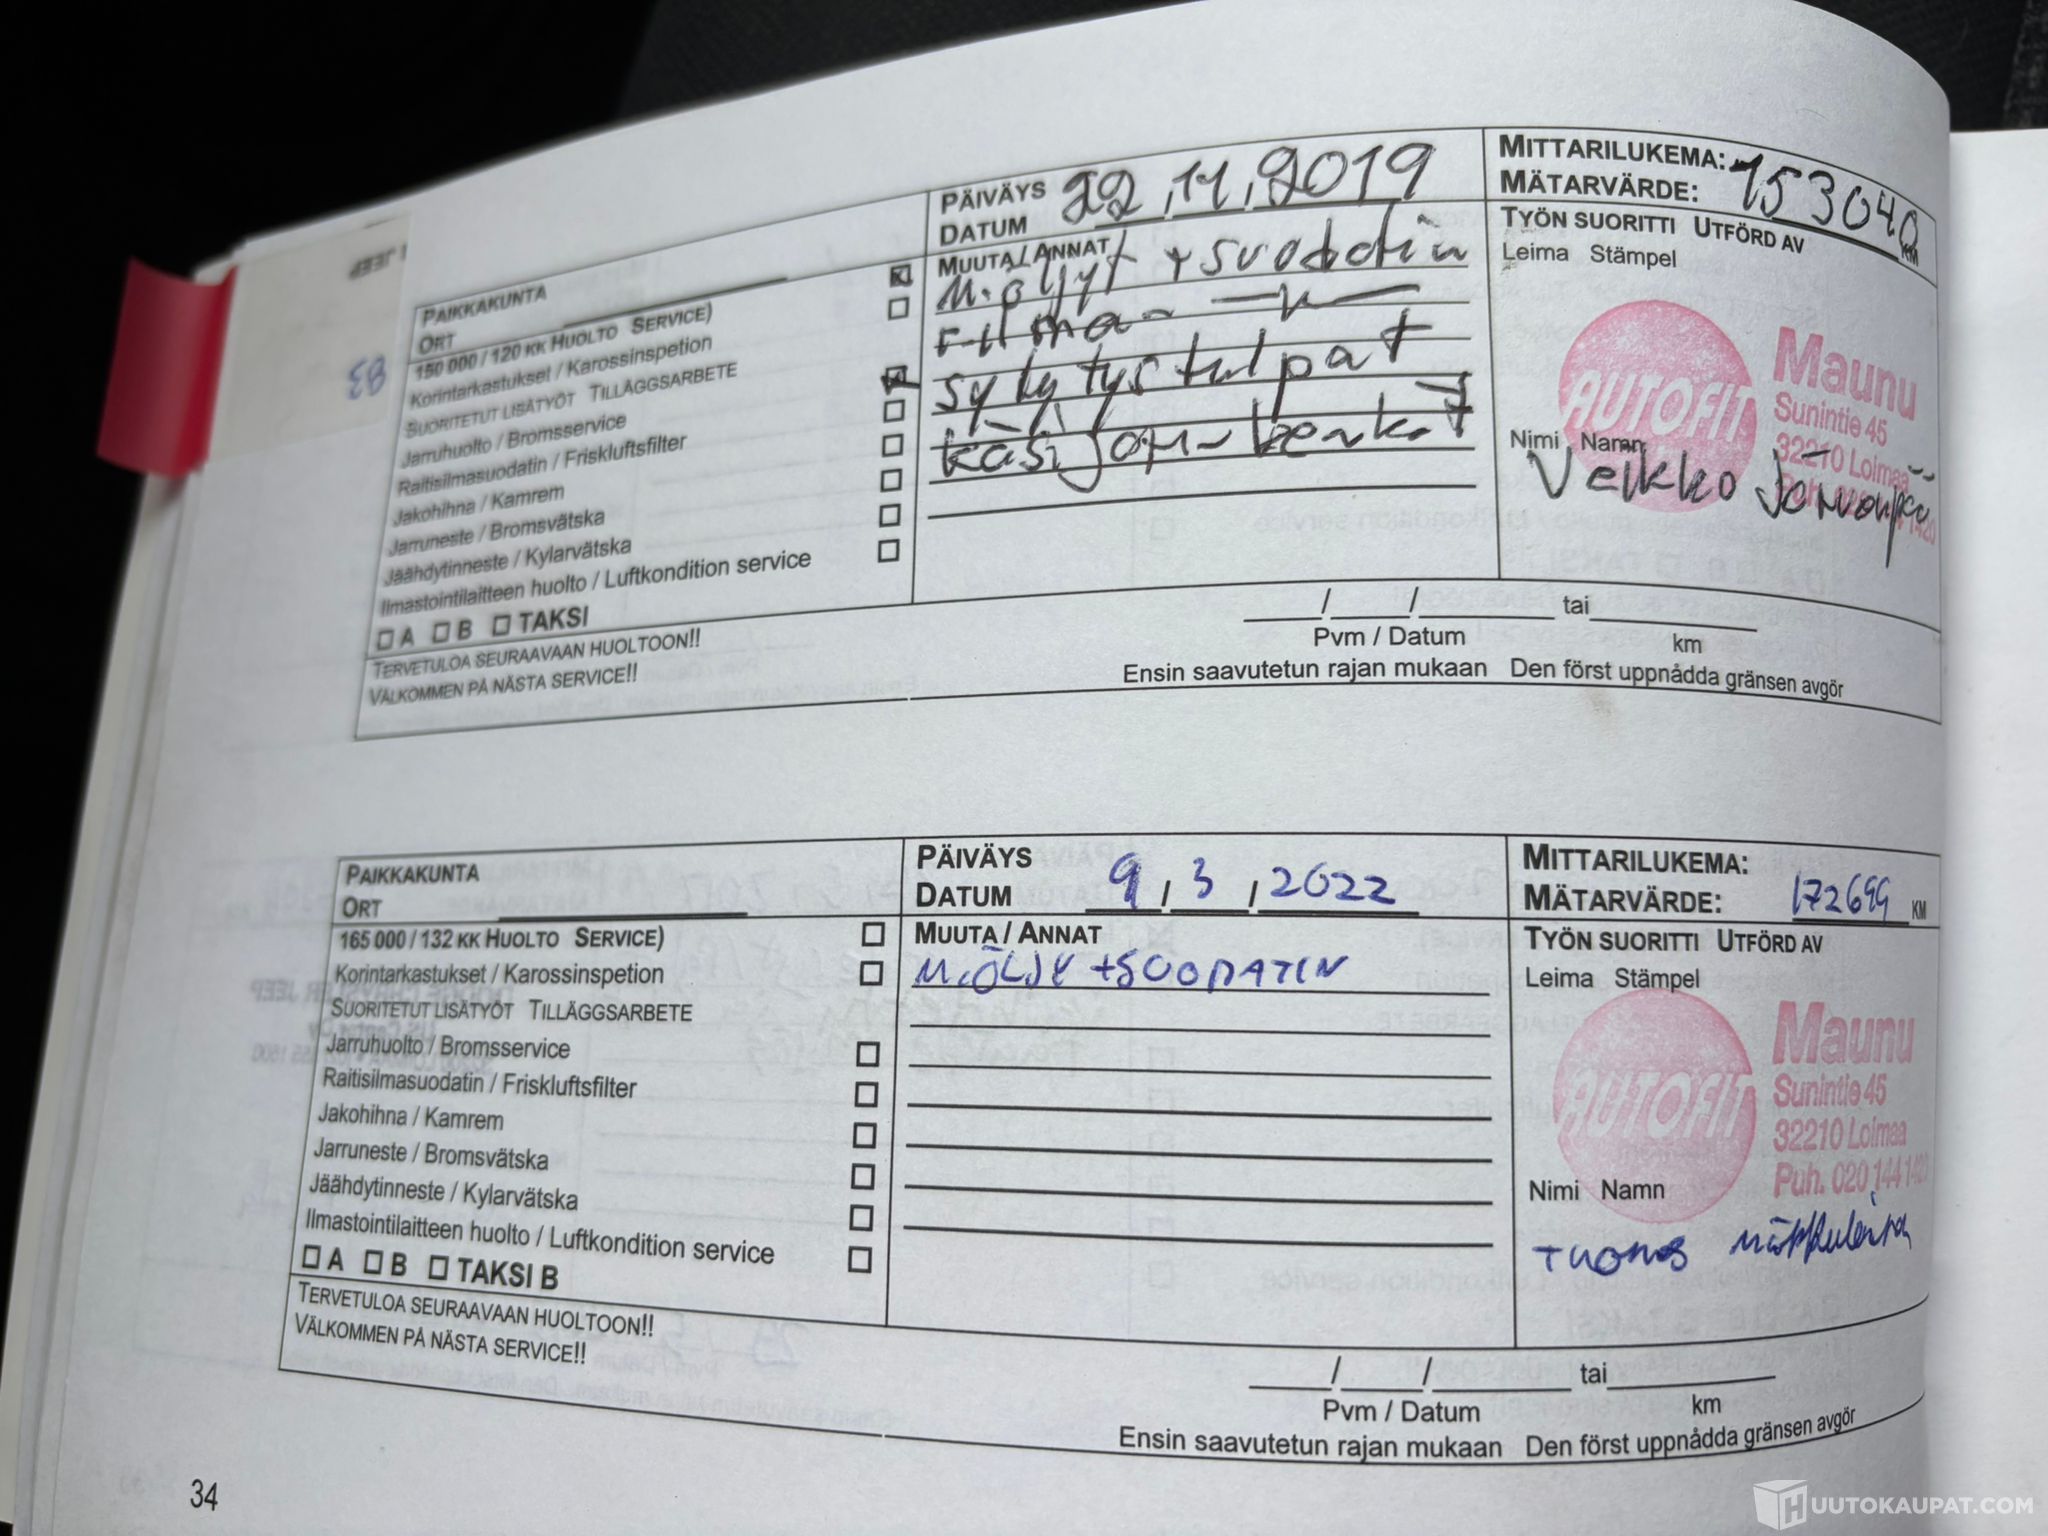 PAIKKAKUNTA
ORT
150 000 / 120 KK HUOLTO SERVICE)
Korintarkastukset / Karossinspetion
SUORITETUT LISÄTYÖT TILLÄGGSARBETE
Jarruhuolto / Bromsservice
Raitisilmasuodatin / Friskluftsfilter
Jakohihna / Kamrem
Jarruneste / Bromsvätska
Jäähdytinneste / Kylarvätska
Ilmastointilaitteen huolto / Luftkondition service
A B TAKSI
TERVETULOA SEURAAVAAN HUOLTOON!!
VÄLKOMMEN PÅ NÄSTA SERVICE!!
PÄIVÄYS
DATUM 22.11.2019
MUUTA / ANNAT
M.öljyt + suodatin
Ilma-
sytytystulpat
käsijarru-
MITTARILUKEMA:
MÄTARVÄRDE: 153040 KM
TYÖN SUORITTI UTFÖRD AV
Leima Stämpel
AUTOFIT
Maunu
Sunintie 45
32210 Loimaa
Nimi Namn
Veikko
/ / tai
Pvm / Datum km
Ensin saavutetun rajan mukaan Den först uppnådda gränsen avgör
PAIKKAKUNTA
ORT
165 000 / 132 KK HUOLTO SERVICE)
Korintarkastukset / Karossinspetion
SUORITETUT LISÄTYÖT TILLÄGGSARBETE
Jarruhuolto / Bromsservice
Raitisilmasuodatin / Friskluftsfilter
Jakohihna / Kamrem
Jarruneste / Bromsvätska
Jäähdytinneste / Kylarvätska
Ilmastointilaitteen huolto / Luftkondition service
A B TAKSI B
TERVETULOA SEURAAVAAN HUOLTOON!!
VÄLKOMMEN PÅ NÄSTA SERVICE!!
PÄIVÄYS
DATUM 9 / 3 / 2022
MUUTA / ANNAT
M.ÖLJY + SUODATIN
MITTARILUKEMA:
MÄTARVÄRDE: 172699 KM
TYÖN SUORITTI UTFÖRD AV
Leima Stämpel
AUTOFIT
Maunu
Sunintie 45
32210 Loimaa
Puh. 020 144 1420
Nimi Namn
Tuomas
/ / tai
Pvm / Datum km
Ensin saavutetun rajan mukaan Den först uppnådda gränsen avgör
34
HUUTOKAUPAT.COM